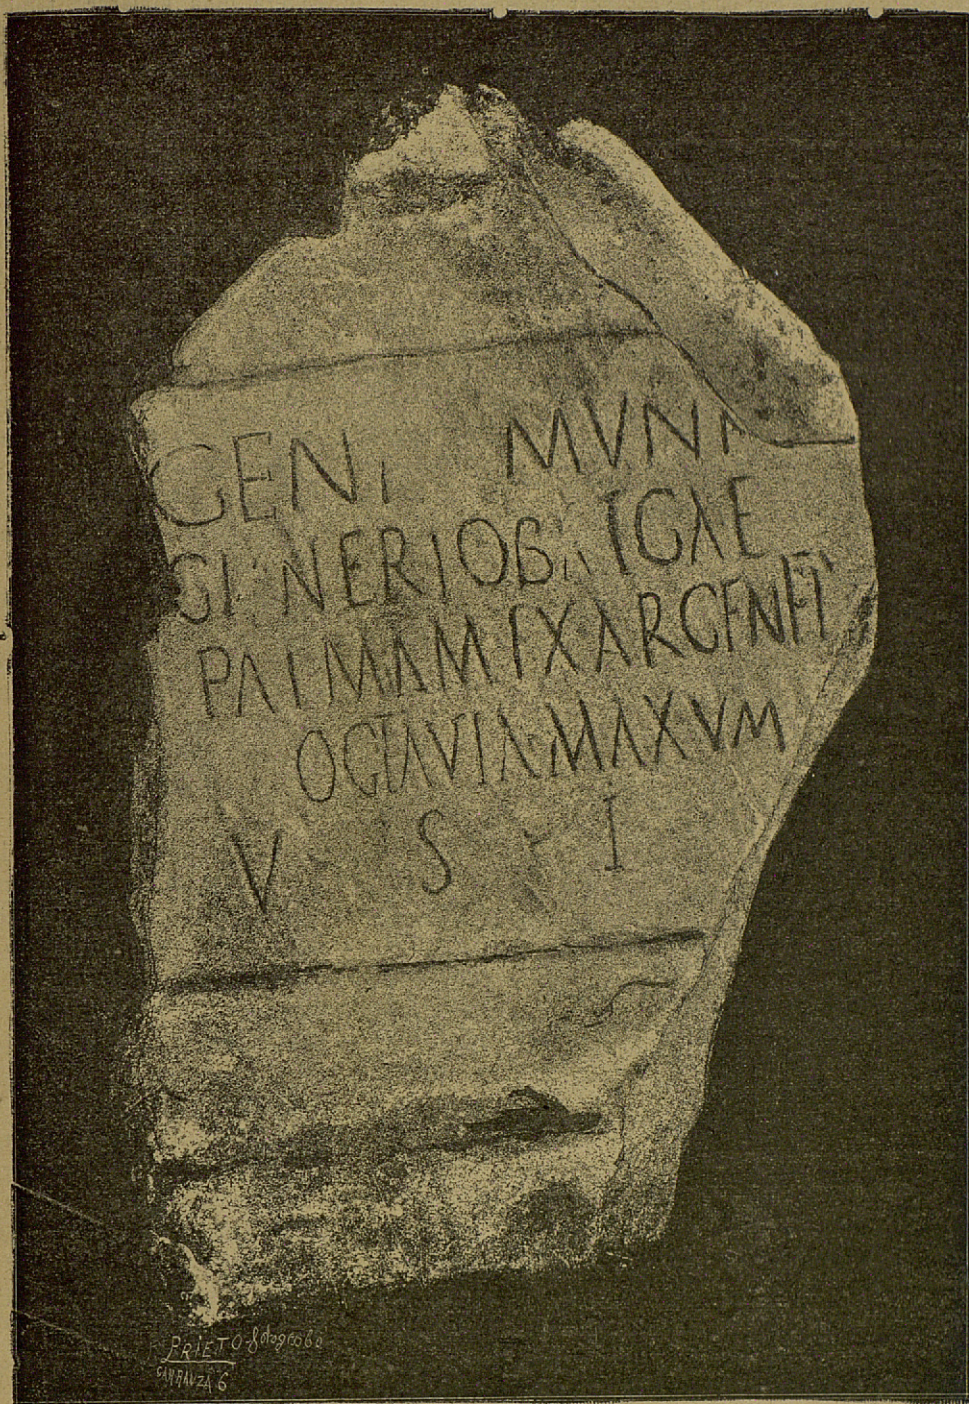 GENI MVNI
CENERIOBRIGAE
PAIMAM EX ARGENEI
OCTAVIA MAXVM
V S I
PRIETO fotograbo
CARRANZA 6